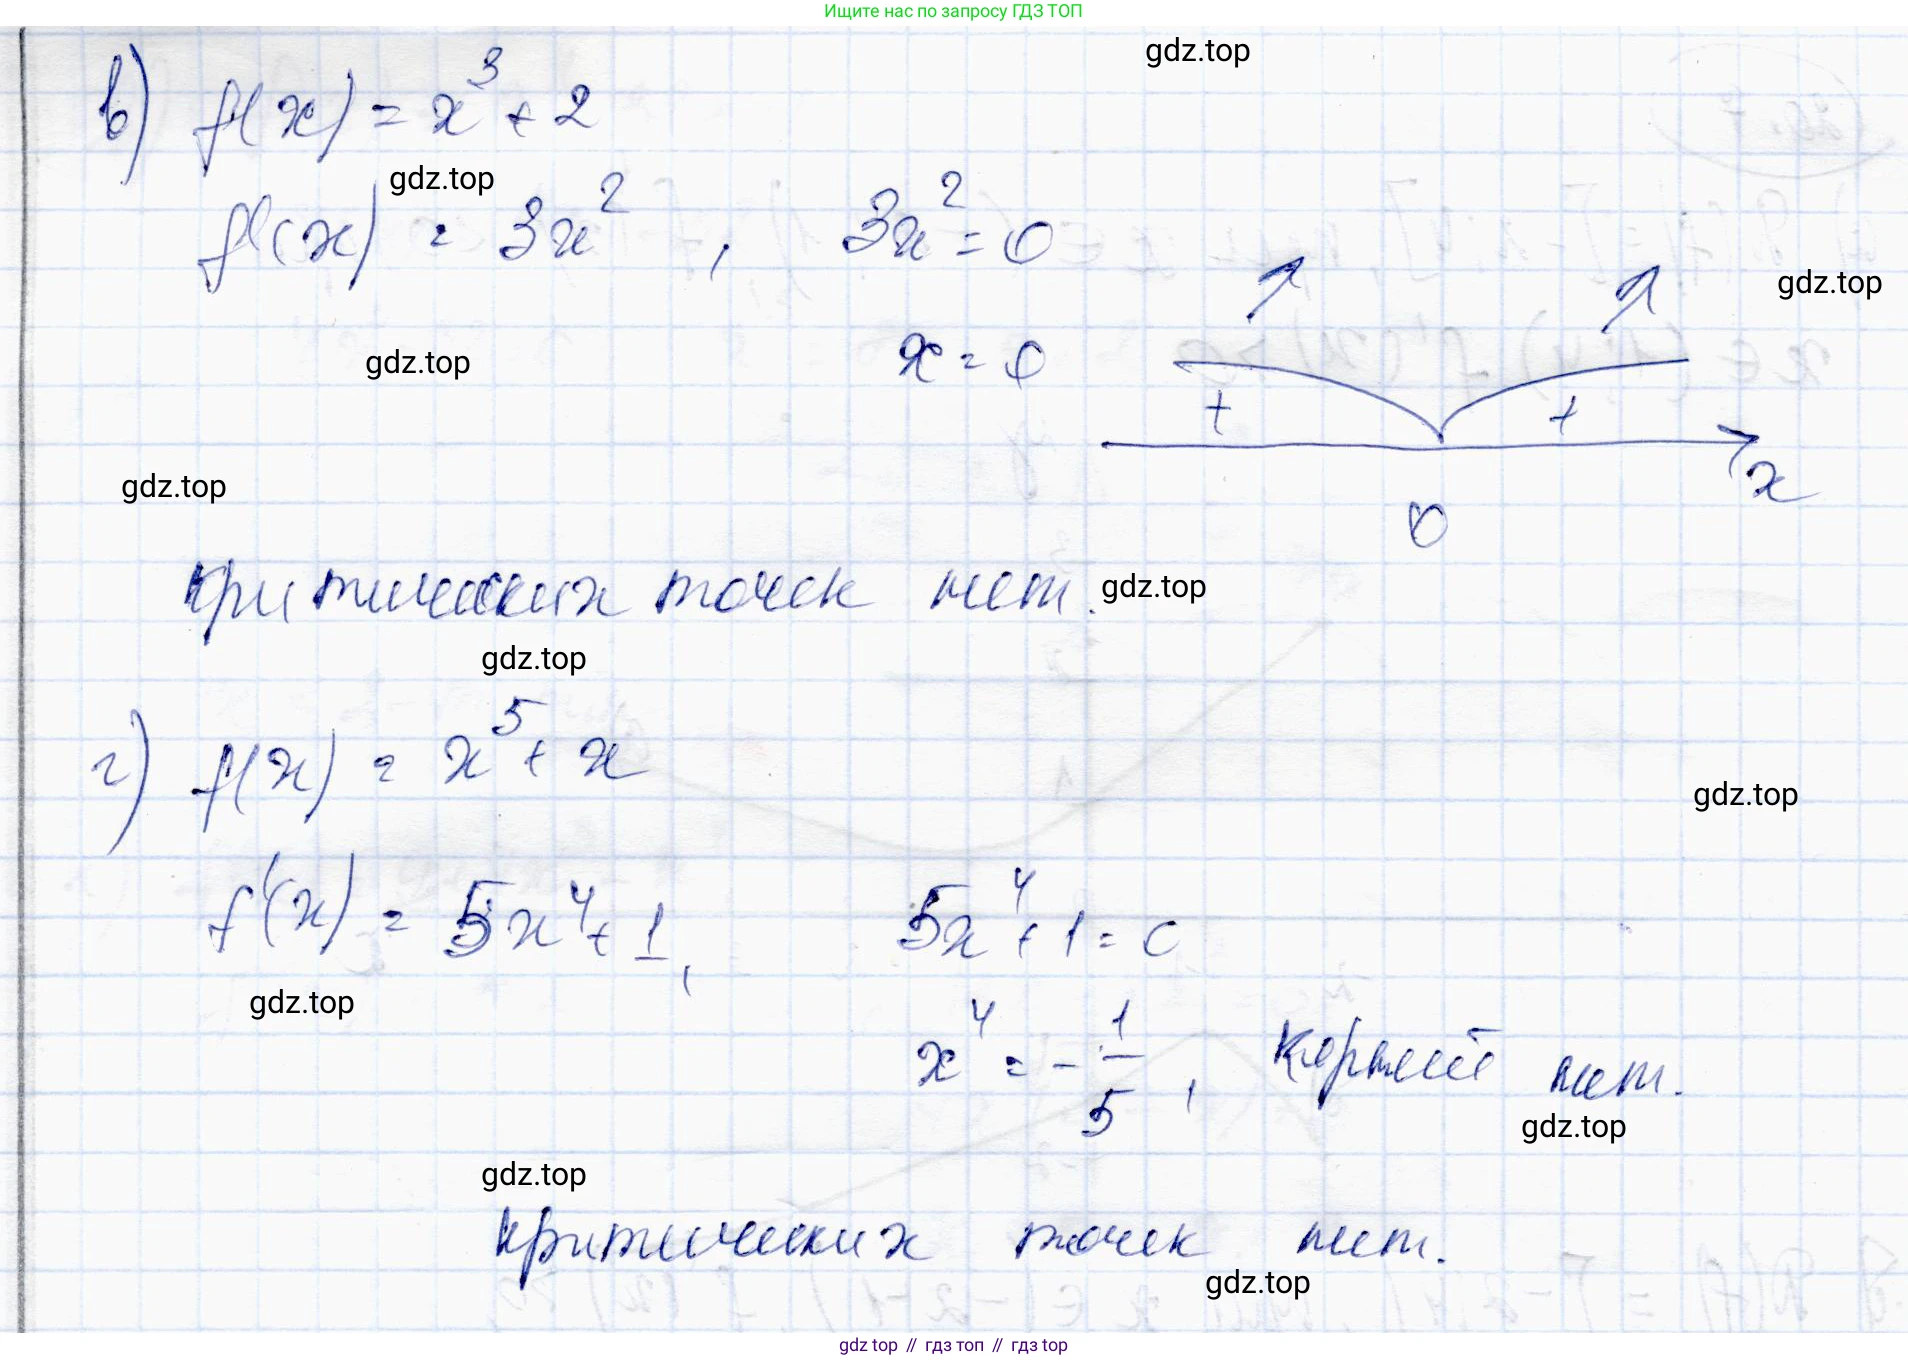 Ищите нас по запросу ГДЗ ТОП
gdz.top
в) f(x) = x³ + 2
gdz.top
f'(x) = 3x², 3x² = 0
gdz.top
x = 0
gdz.top
+ +
x
gdz.top
0
критических точек нет.
gdz.top
gdz.top
г) f(x) = x⁵ + x
gdz.top
f'(x) = 5x⁴ + 1, 5x⁴ + 1 = 0
gdz.top
x⁴ = - 1/5, корней нет.
gdz.top
gdz.top
критических точек нет.
gdz.top
gdz top // гдз топ // gdz top